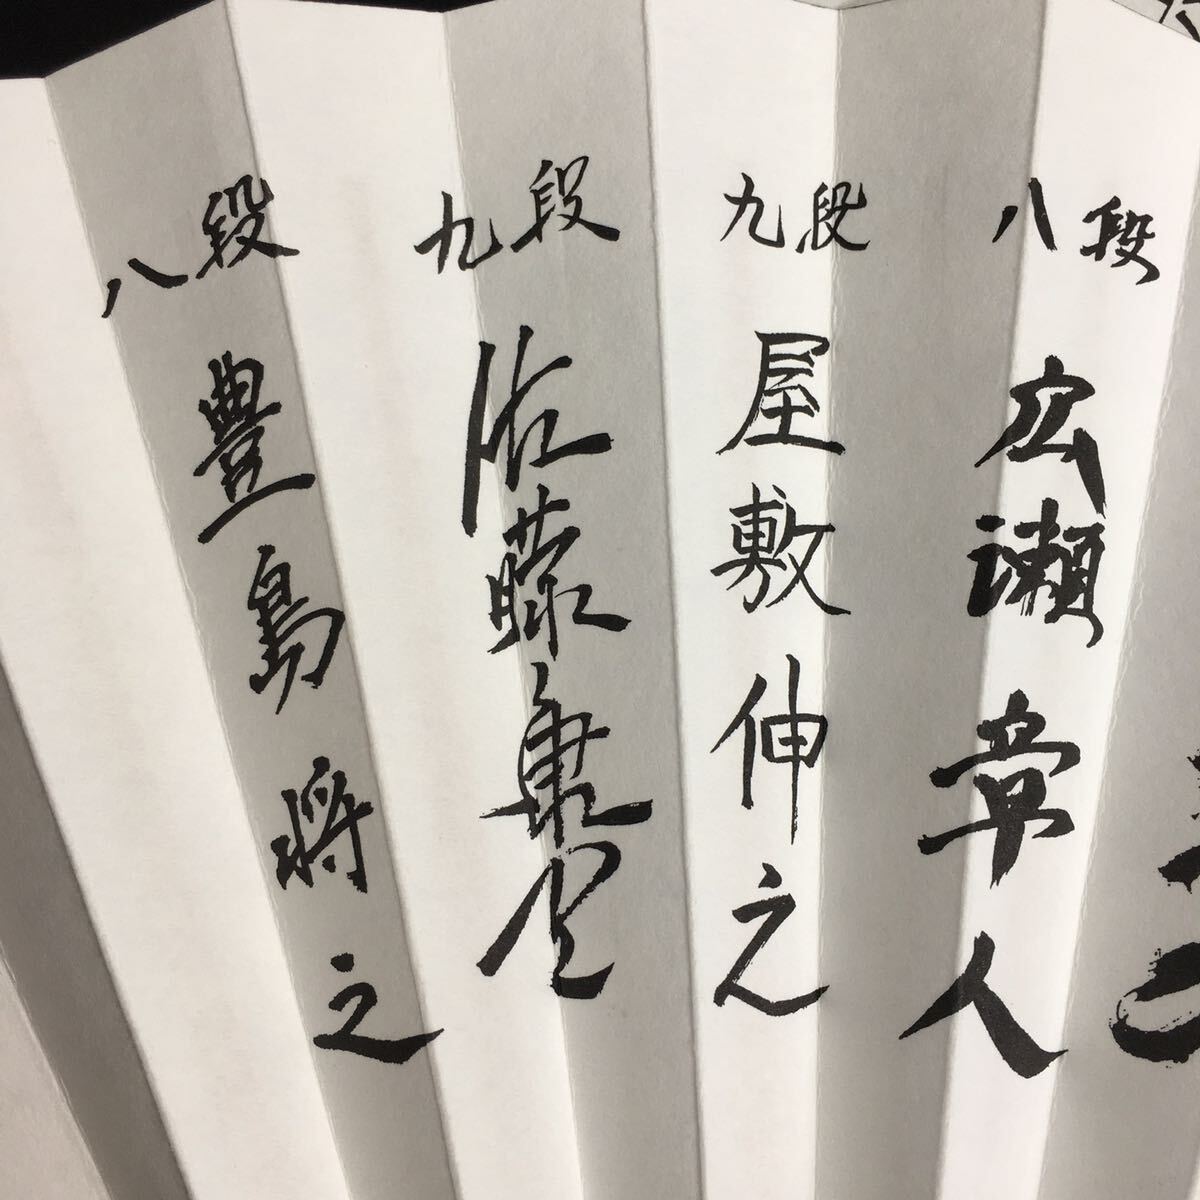 八段 広瀬章人
九段 屋敷伸之
九段 佐藤康光
八段 豊島将之